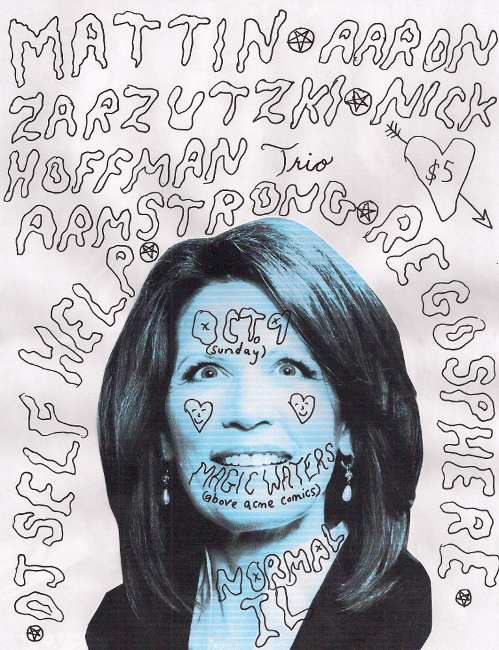 MATTIN AARON
ZARZUTZKI NICK
HOFFMAN Trio
$5
ARMSTRONG REGOSPHERE
DJ SELF HELP
OCT. 9
(sunday)
MAGIC WATERS
(above acme comics)
NORMAL
IL